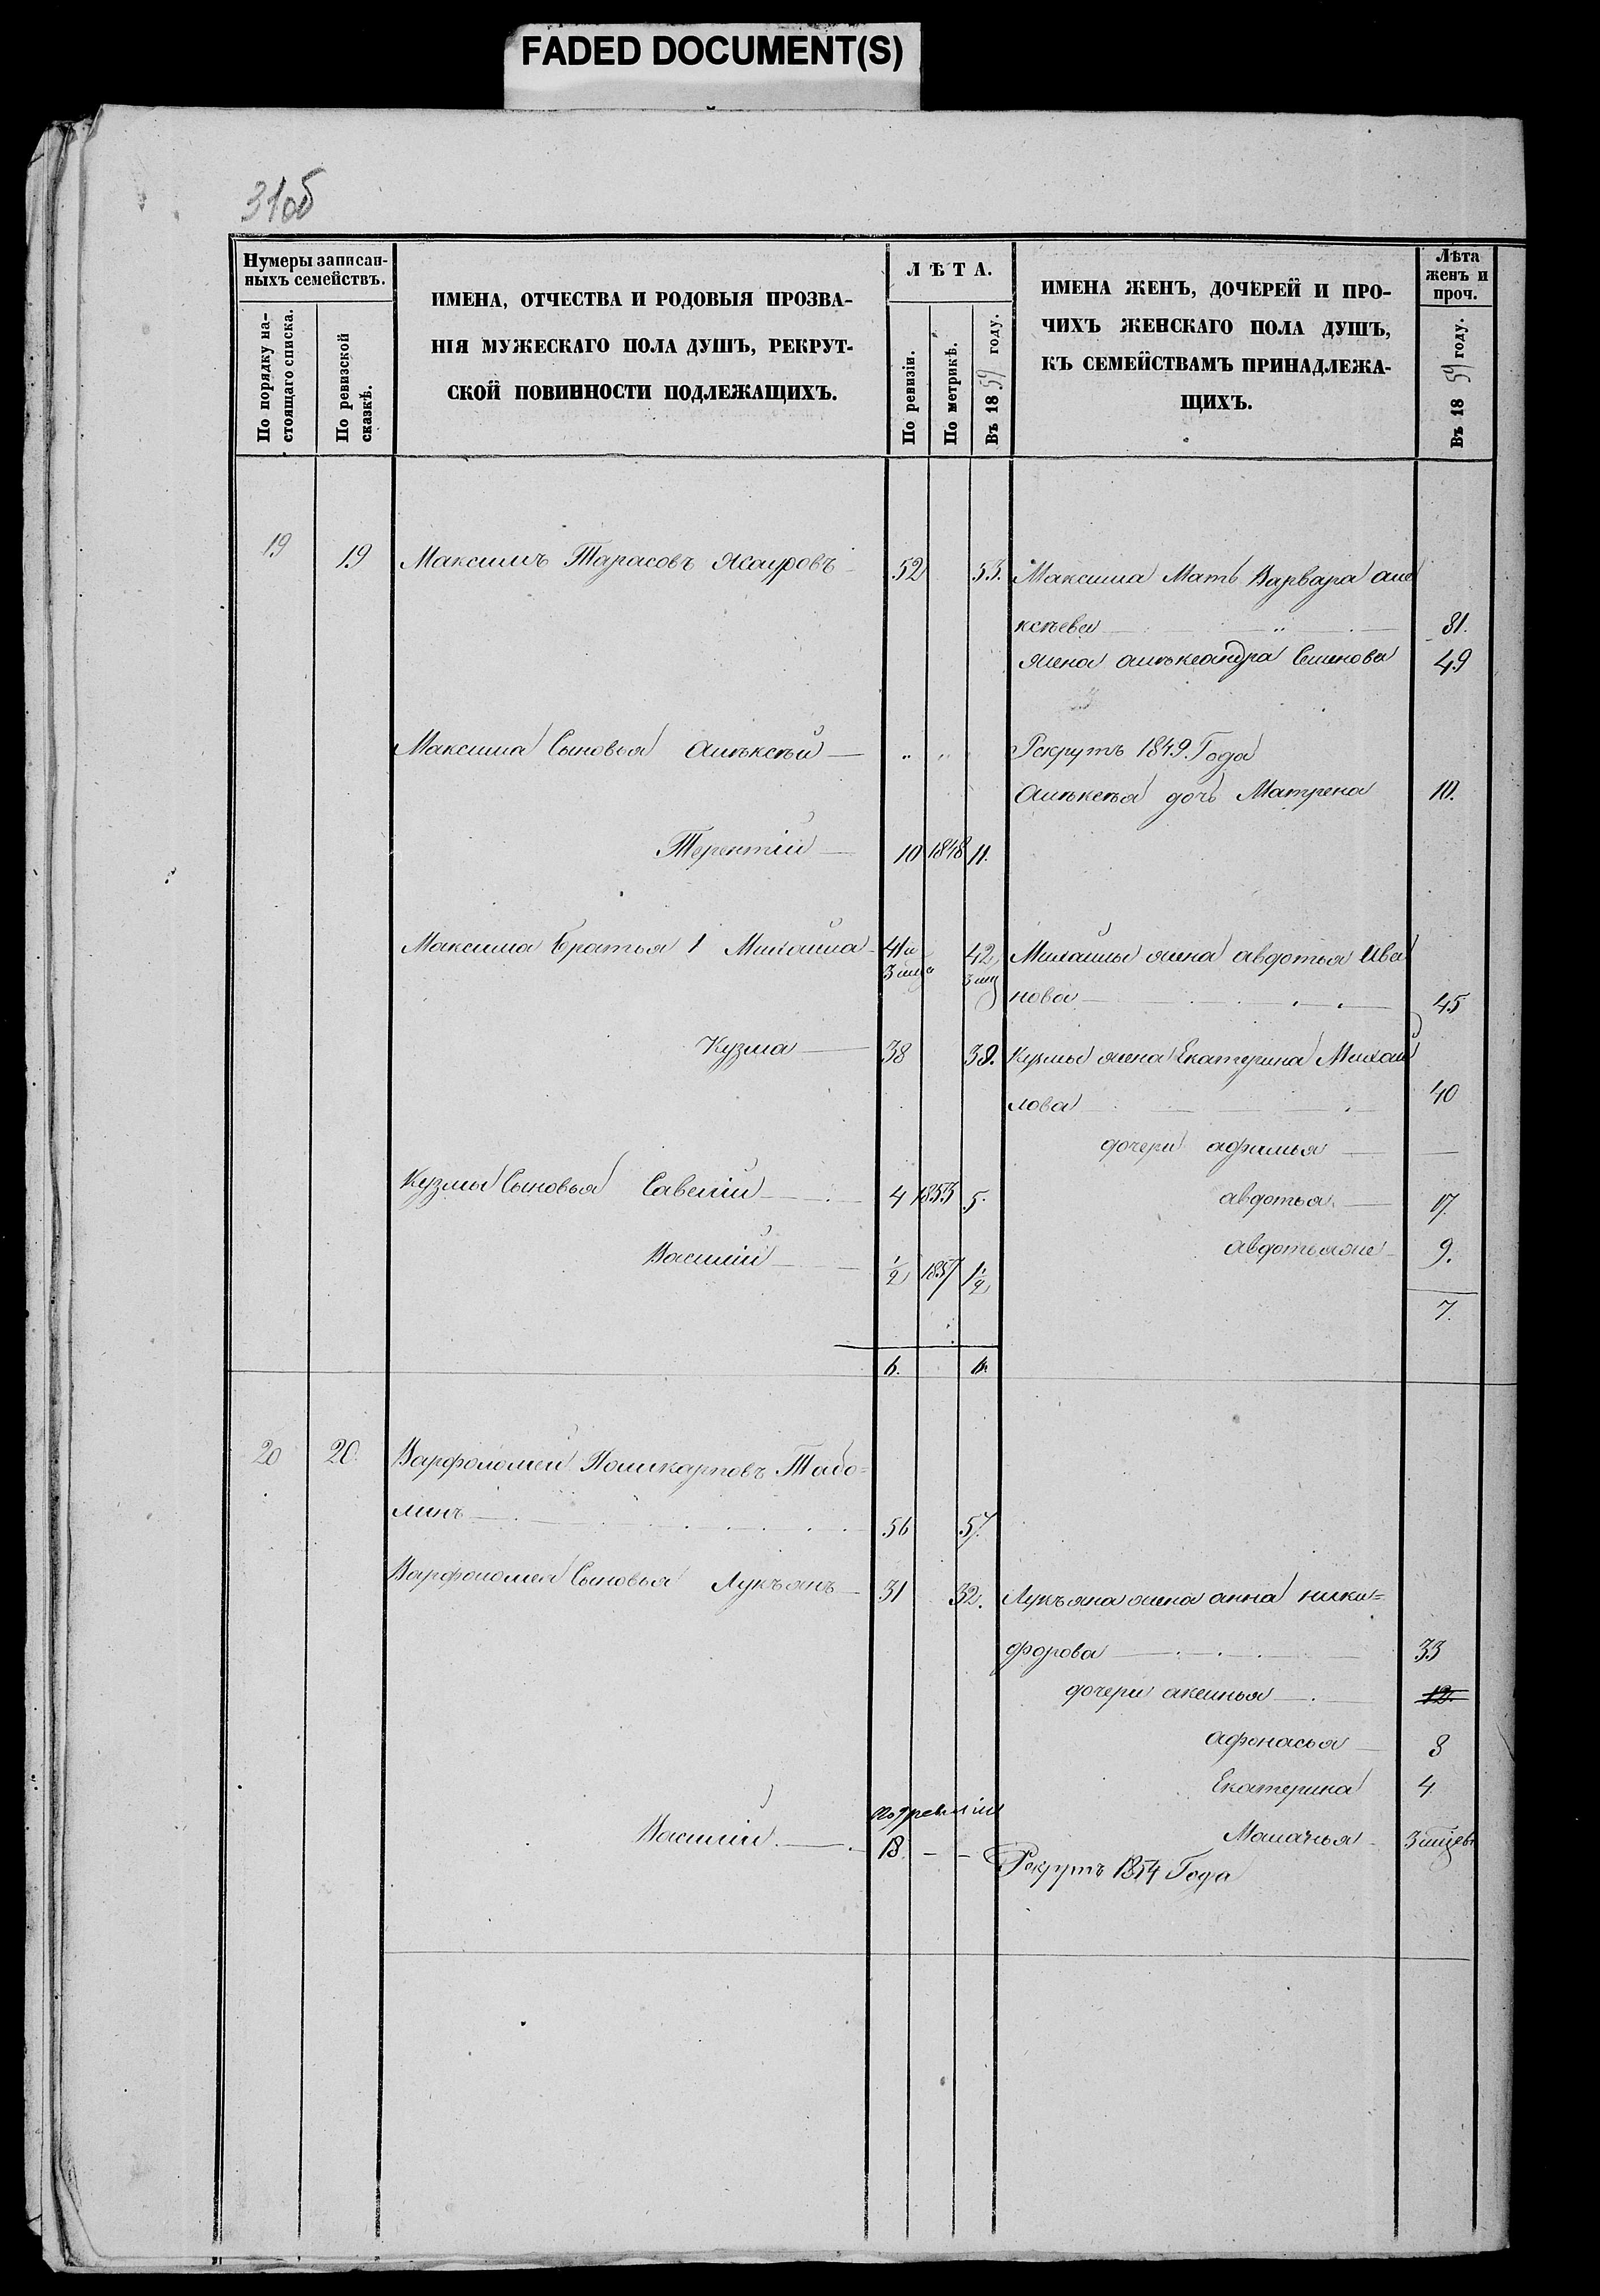 FADED DOCUMENT(S)
31об
Нумеры записан-
ныхъ семействъ.
По порядку на-
стоящаго списка.
По ревизской
сказкѣ.
ИМЕНА, ОТЧЕСТВА И РОДОВЫЯ ПРОЗВА-
НІЯ МУЖЕСКАГО ПОЛА ДУШЪ, РЕКРУТ-
СКОЙ ПОВИННОСТИ ПОДЛЕЖАЩИХЪ.
ЛѢТА.
По ревизіи.
По метрикѣ.
Въ 1859 году.
ИМЕНА ЖЕНЪ, ДОЧЕРЕЙ И ПРО-
ЧИХЪ ЖЕНСКАГО ПОЛА ДУШЪ,
КЪ СЕМЕЙСТВАМЪ ПРИНАДЛЕЖА-
ЩИХЪ.
Лѣта
женъ и
проч.
Въ 1859 году.
19 19 Максимъ Тарасовъ 52 53. Максима Мать Варвара але
ксѣева 81.
жена алѣксандра Семенова 49
Максима Сыновья Алѣксѣй Рекрутъ 1849. Года
Алѣксѣя дочь Матрена 10.
Терентій 10 1848 11.
Максима Братья 1 42 жена авдотья Ива
нова 45
Кузма 38 39. Кузмы жена Екатерина Михай
лова 40
дочери афимья —
Кузмы Сыновья Савелій 4 1853 5. авдотья 17.
Василій 1/2 1857 1 1/2 авдотья же 9.
7.
6. 6.
20 20. Варфоломей Поликарповъ Табо=
линъ 56 57.
Варфоломея Сыновья Лукъянъ 31 32. Лукъяна жена анна ники=
форова 33
дочери аксинья 12.
афонасья 8
Екатерина 4
по ревизіи
Василій 18. — — Маланья
Рекрутъ 1854 Года